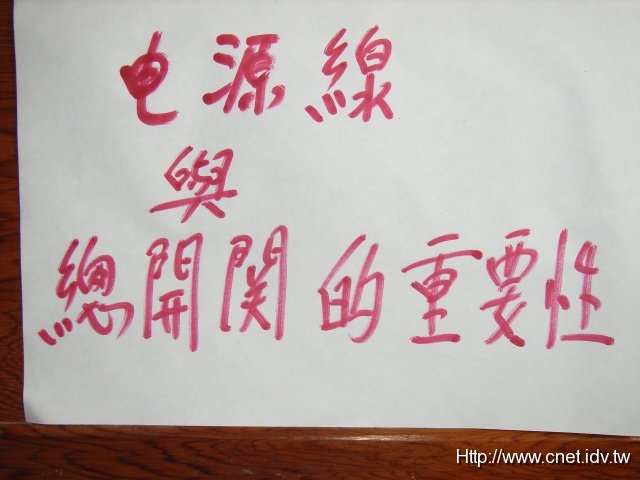 电源線
與
總開関的重要性
Http://www.cnet.idv.tw